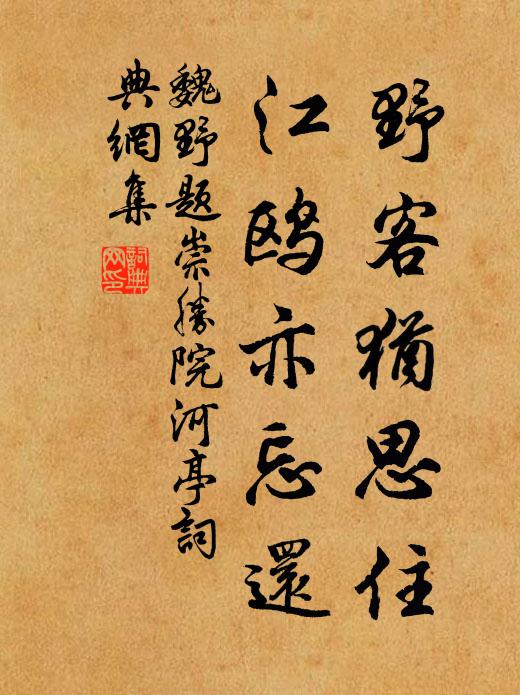 野客猶思住
江鸥亦忘還
魏野题崇勝院河亭詞
典網集
詞典
网印